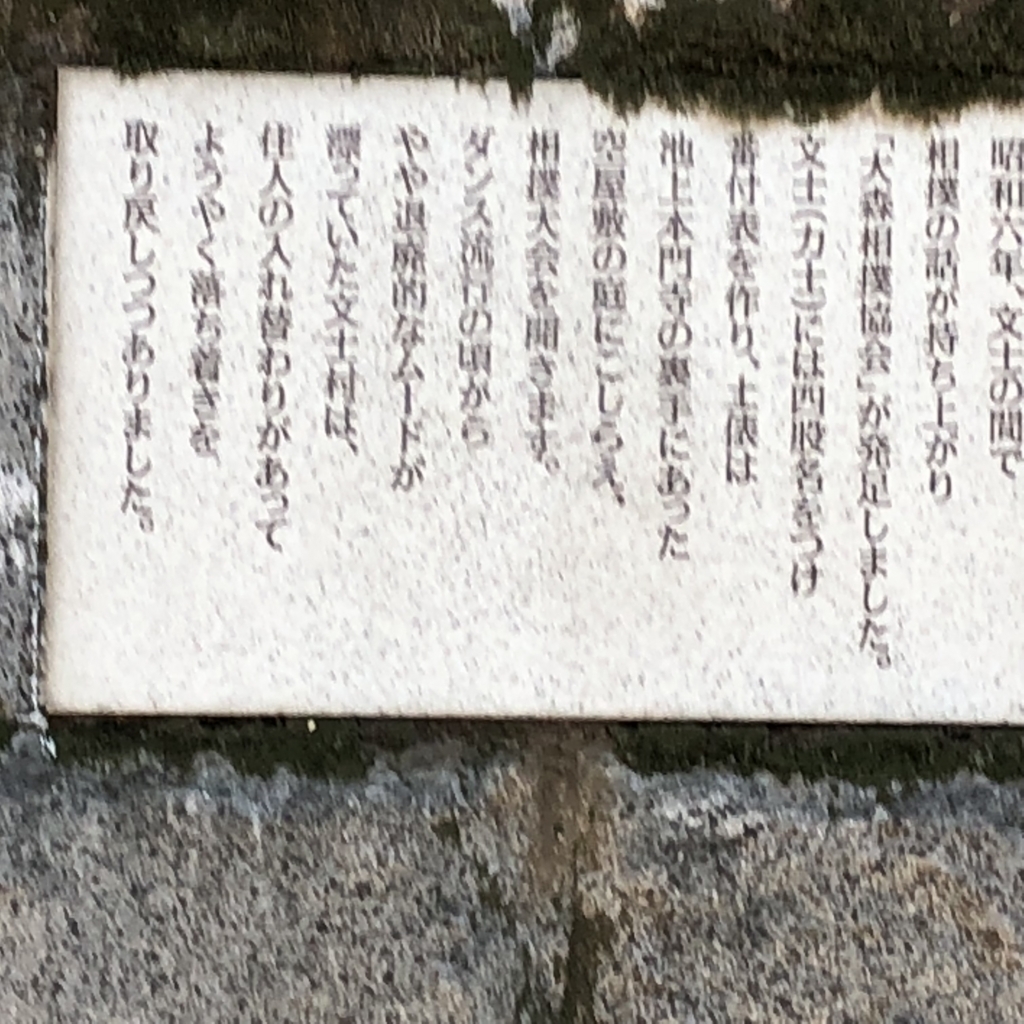 昭和六年、文士の間で
相撲の話が持ち上がり
「大森相撲協会」が発足しました。
文士(力士)には四股名をつけ
番付表を作り、土俵は
池上本門寺の裏手にあった
空屋敷の庭にこしらえ、
相撲大会を開きます。
ダンス流行の頃から
やや退廃的なムードが
漂っていた文士村は、
住人の入れ替わりがあって
ようやく落ち着きを
取り戻しつつありました。